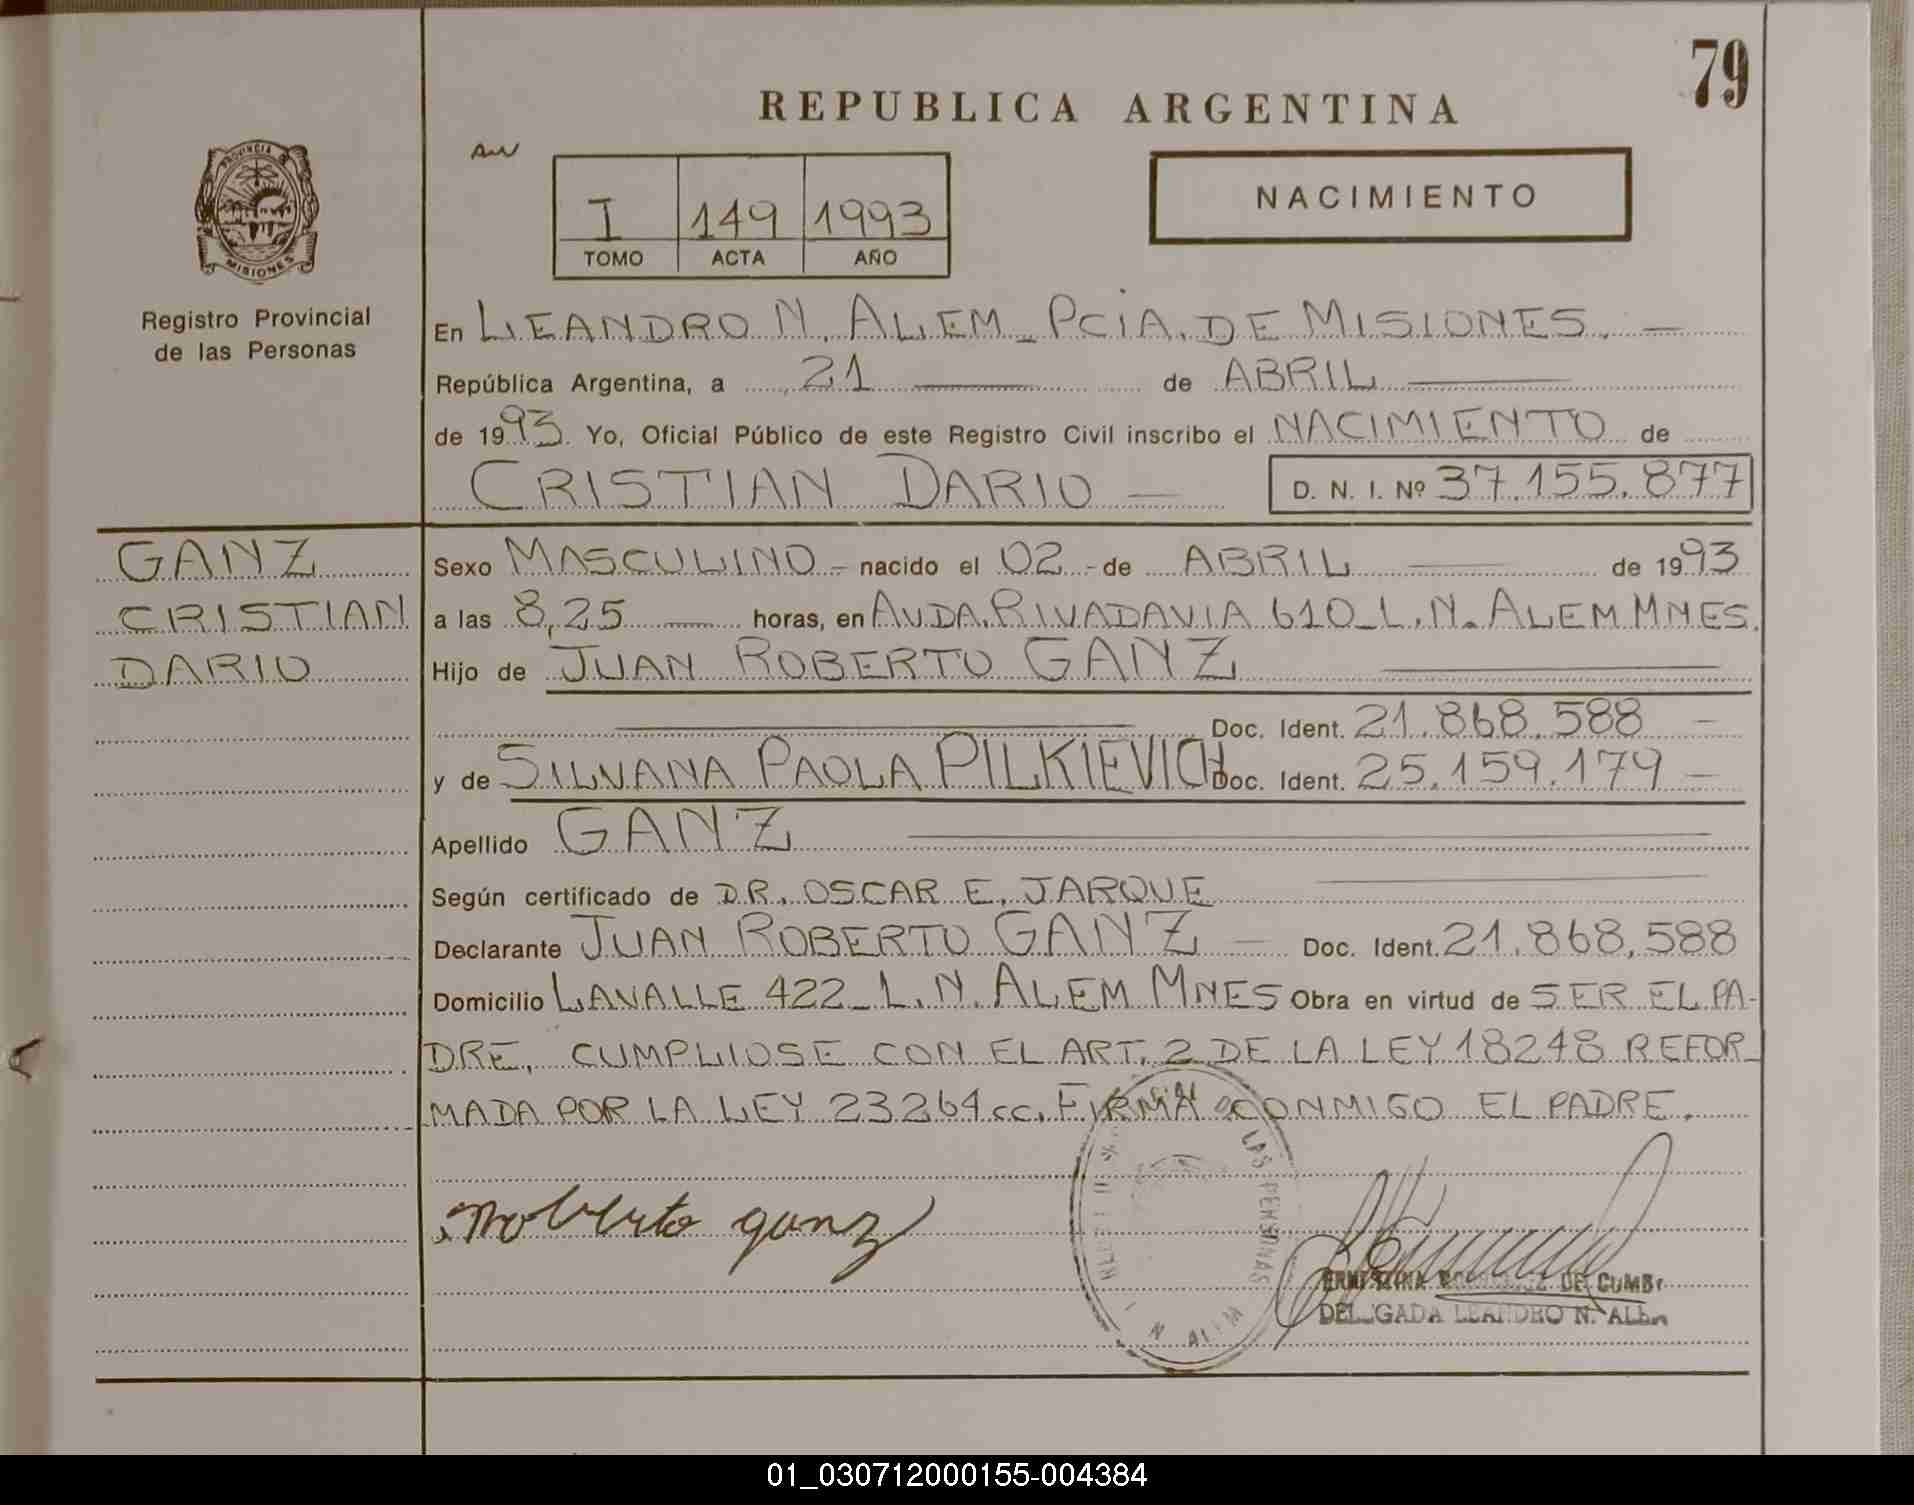 79
REPUBLICA ARGENTINA
PROVINCIA DE
MISIONES
Registro Provincial
de las Personas
I 149 1993
TOMO ACTA AÑO
NACIMIENTO
En LEANDRO N. ALEM - PCIA. DE MISIONES. -
República Argentina, a 21 de ABRIL
de 1993. Yo, Oficial Público de este Registro Civil inscribo el NACIMIENTO de
CRISTIAN DARIO - D. N. I. Nº 37.155.877
GANZ
CRISTIAN
DARIO
Sexo MASCULINO - nacido el 02 - de ABRIL de 1993
a las 8,25 horas, en AVDA. RIVADAVIA 610 - L. N. ALEM MNES.
Hijo de JUAN ROBERTO GANZ
Doc. Ident. 21.868.588 -
y de SILVANA PAOLA PILKIEVICH Doc. Ident. 25.159.179 -
Apellido GANZ
Según certificado de DR. OSCAR E. JARQUE
Declarante JUAN ROBERTO GANZ - Doc. Ident. 21.868.588
Domicilio LAVALLE 422 - L. N. ALEM MNES Obra en virtud de SER EL PA-
DRE, CUMPLIOSE CON EL ART. 2 DE LA LEY 18248 REFOR-
MADA POR LA LEY 23264 cc. FIRMA CONMIGO EL PADRE.
Roberto ganz
LAS PERSONAS
N. ALEM
DE CUMB
DELEGADA LEANDRO N. ALEM
01_030712000155-004384